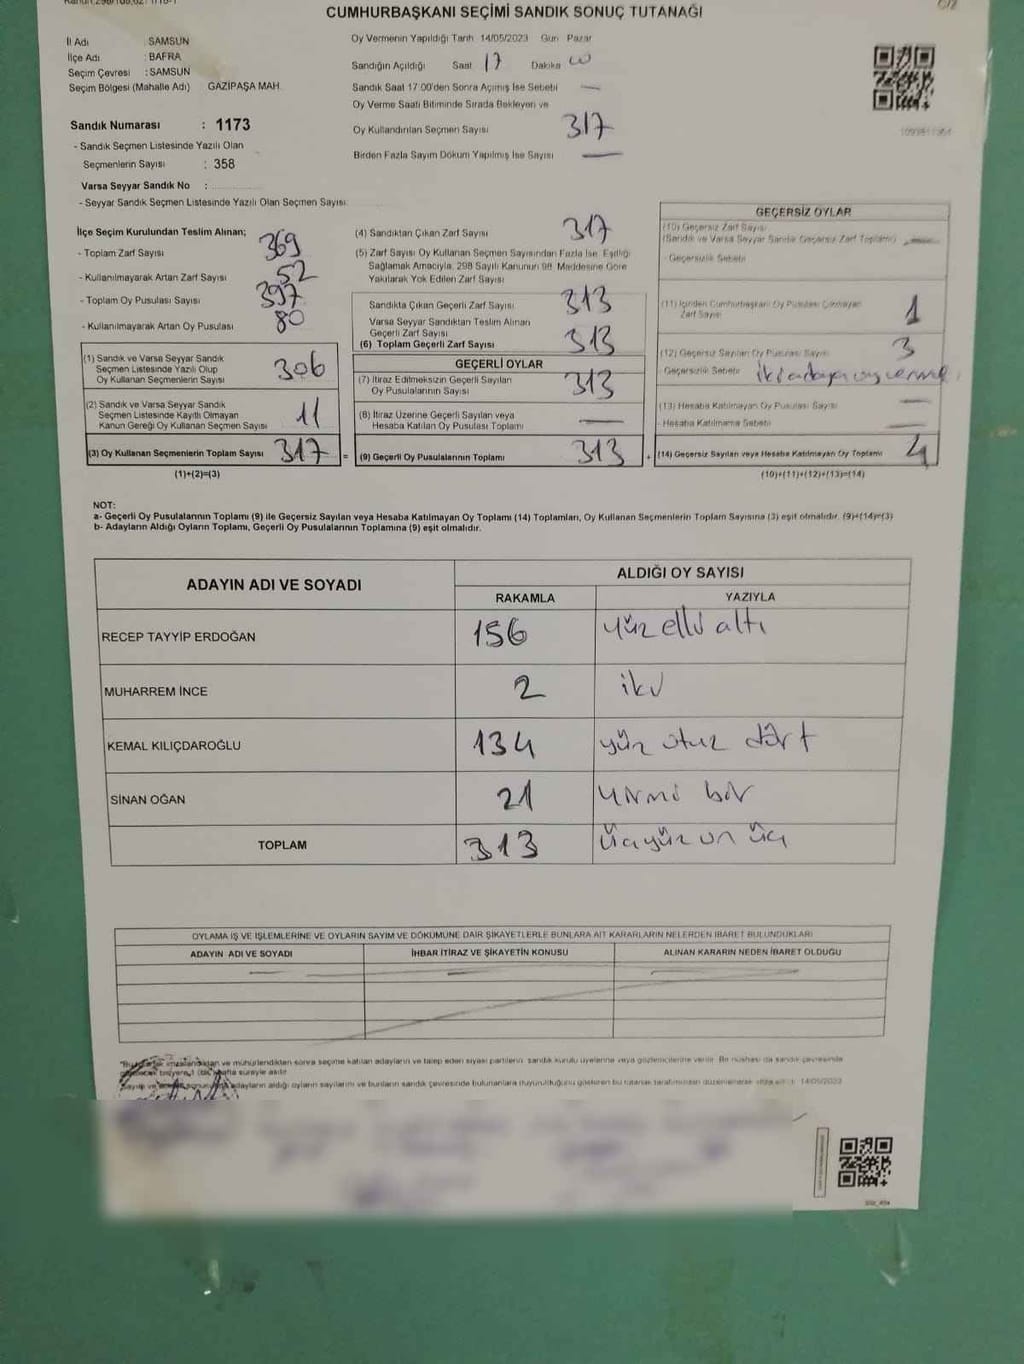 CUMHURBAŞKANI SEÇİMİ SANDIK SONUÇ TUTANAĞI
İl Adı : SAMSUN
İlçe Adı : BAFRA
Seçim Çevresi : SAMSUN
Seçim Bölgesi (Mahalle Adı) GAZİPAŞA MAH.
Sandık Numarası : 1173
- Sandık Seçmen Listesinde Yazılı Olan
Seçmenlerin Sayısı : 358
Varsa Seyyar Sandık No :
- Seyyar Sandık Seçmen Listesinde Yazılı Olan Seçmen Sayısı:
Oy Vermenin Yapıldığı Tarih 14/05/2023 Gün Pazar
Sandığın Açıldığı Saat 17 Dakika 00
Sandık Saat 17:00'den Sonra Açımış İse Sebebi —
Oy Verme Saati Bitiminde Sırada Bekleyen ve
Oy Kullandırılan Seçmen Sayısı 317
Birden Fazla Sayım Döküm Yapılmış İse Sayısı —
İlçe Seçim Kurulundan Teslim Alınan;
- Toplam Zarf Sayısı 369
- Kullanılmayarak Artan Zarf Sayısı 52
- Toplam Oy Pusulası Sayısı 397
- Kullanılmayarak Artan Oy Pusulası 80
(1) Sandık ve Varsa Seyyar Sandık
Seçmen Listesinde Yazılı Olup
Oy Kullanan Seçmenlerin Sayısı 306
(2) Sandık ve Varsa Seyyar Sandık
Seçmen Listesinde Kayıtlı Olmayan
Kanun Gereği Oy Kullanan Seçmen Sayısı 11
(3) Oy Kullanan Seçmenlerin Toplam Sayısı 317
(1)+(2)=(3)
(4) Sandıktan Çıkan Zarf Sayısı 317
(5) Zarf Sayısı Oy Kullanan Seçmen Sayısından Fazla İse, Eşitliği
Sağlamak Amacıyla, 298 Sayılı Kanunun 98. Maddesine Göre
Yakılarak Yok Edilen Zarf Sayısı
Sandıkta Çıkan Geçerli Zarf Sayısı 313
Varsa Seyyar Sandıktan Teslim Alınan
Geçerli Zarf Sayısı
(6) Toplam Geçerli Zarf Sayısı 313
GEÇERLİ OYLAR
(7) İtiraz Edilmeksizin Geçerli Sayılan
Oy Pusulalarının Sayısı 313
(8) İtiraz Üzerine Geçerli Sayılan veya
Hesaba Katılan Oy Pusulası Toplamı —
= (9) Geçerli Oy Pusulalarının Toplamı 313
GEÇERSİZ OYLAR
(10) Geçersiz Zarf Sayısı
(Sandık ve Varsa Seyyar Sandık Geçersiz Zarf Toplamı) —
- Geçersizlik Sebebi
(11) İçinden Cumhurbaşkanı Oy Pusulası Çıkmayan
Zarf Sayısı 1
(12) Geçersiz Sayılan Oy Pusulası Sayısı 3
- Geçersizlik Sebebi iki adaya oy verme
(13) Hesaba Katılmayan Oy Pusulası Sayısı —
- Hesaba Katılmama Sebebi —
+ (14) Geçersiz Sayılan veya Hesaba Katılmayan Oy Toplamı 4
(10)+(11)+(12)+(13)=(14)
NOT:
a- Geçerli Oy Pusulalarının Toplamı (9) ile Geçersiz Sayılan veya Hesaba Katılmayan Oy Toplamı (14) Toplamları, Oy Kullanan Seçmenlerin Toplam Sayısına (3) eşit olmalıdır. (9)+(14)=(3)
b- Adayların Aldığı Oyların Toplamı, Geçerli Oy Pusulalarının Toplamına (9) eşit olmalıdır.
ADAYIN ADI VE SOYADI
ALDIĞI OY SAYISI
RAKAMLA YAZIYLA
RECEP TAYYİP ERDOĞAN 156 yüz elli altı
MUHARREM İNCE 2 iki
KEMAL KILIÇDAROĞLU 134 yüz otuz dört
SİNAN OĞAN 21 yirmi bir
TOPLAM 313 üçyüz on üç
OYLAMA İŞ VE İŞLEMLERİNE VE OYLARIN SAYIM VE DÖKÜMÜNE DAİR ŞİKAYETLERLE BUNLARA AİT KARARLARIN NELERDEN İBARET BULUNDUKLARI
ADAYIN ADI VE SOYADI İHBAR İTİRAZ VE ŞİKAYETİN KONUSU ALINAN KARARIN NEDEN İBARET OLDUĞU
ve mühürlendikten sonra seçime katılan adayların ve talep eden siyasi partilerin sandık kurulu üyelerine veya gözlemcilerine verilir. Bir nüshası da sandık çevresinde
adayların aldığı oyların sayılarını ve bunların sandık çevresinde bulunanlara duyurulduğunu gösteren bu tutanak tarafımızdan düzenlenerek 14/05/2023